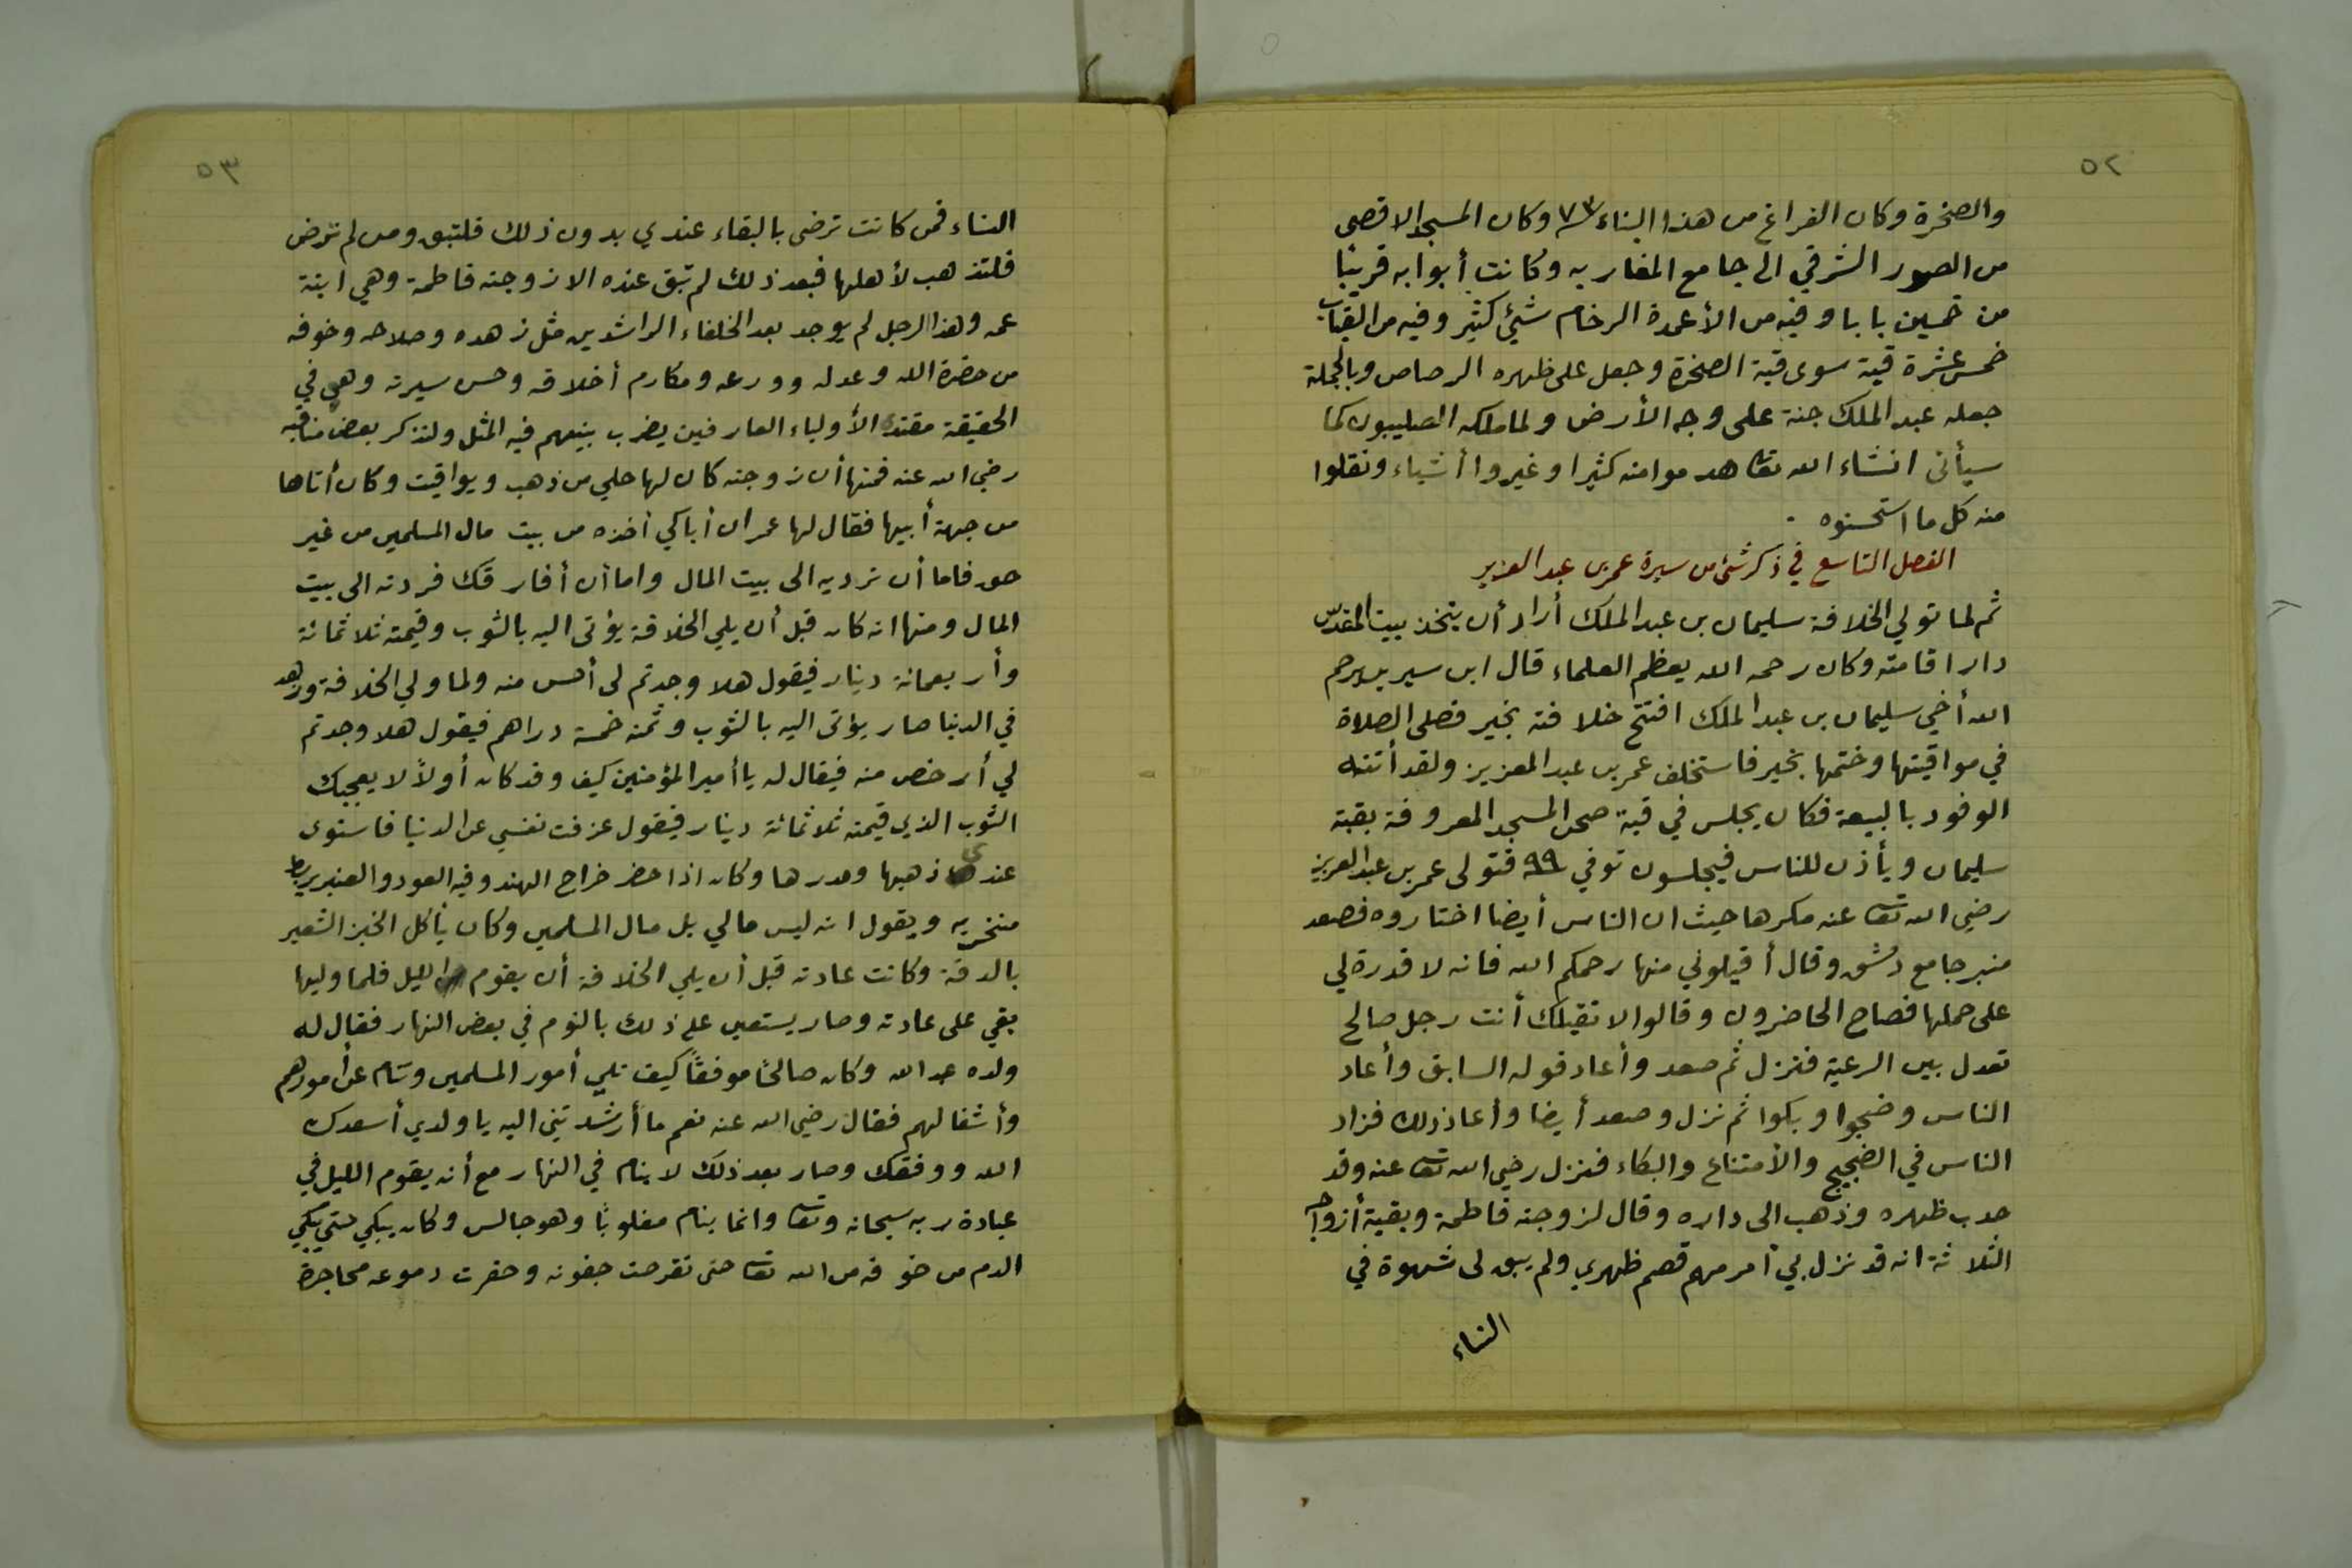 ٥٢
والصخرة وكان الفراغ من هذا البناء ٧٣ وكان المسجد الاقصى
من الصور الشرقي الى جامع المغاربه وكانت أبوابه قريبًا
من خمسين بابا وفيه من الأعمدة الرخام شيئ كثير وفيه من القباب
خمس عشرة قبة سوى قبة الصخرة وجعل على ظهره الرصاص وبالجملة
جعله عبد الملك جنة على وجه الأرض ولما ملكه الصليبون كما
سيأتى انشاء الله تعا هدموا منه كثيرا وغيروا أشياء ونقلوا
منه كل ما استحسنوه .
الفصل التاسع في ذكر شئ من سيرة عمر بن عبد العزيز
ثم لما تولي الخلافة سليمان بن عبد الملك أراد أن يتخذ بيت المقدس
دار اقامته وكان رحمه الله يعظم العلماء قال ابن سيرين يرحم
الله أخي سليمان بن عبد الملك افتتح خلافته بخير فصلى الصلاة
في مواقيتها وختمها بخير فاستخلف عمر بن عبد العزيز ولقد أتته
الوفود بالبيعة فكان يجلس في قبة صحن المسجد المعروفة بقبة
سليمان ويأذن للناس فيجلسون توفي ٩٩ فتولى عمر بن عبد العزيز
رضي الله تعا عنه مكرها حيث ان الناس أيضا اختاروه فصعد
منبر جامع دمشق وقال أقيلوني منها رحمكم الله فانه لا قدرة لي
على حملها فصاح الحاضرون وقالوا لا نقيلك أنت رجل صالح
تعدل بين الرعية فنزل ثم صعد وأعاد قوله السابق وأعاد
الناس وضجوا وبكوا ثم نزل وصعد أيضا وأعاد ذلك فزاد
الناس في الضجيج والأمتناع والبكاء فنزل رضي الله تعا عنه وقد
حدب ظهره وذهب الى داره وقال لزوجته فاطمة وبقية أزواجه
الثلاثة انه قد نزل بي أمر مهم قصم ظهري ولم يبق لى شهوة في
النساء
٥٣
النساء فمن كانت ترضى بالبقاء عندي بدون ذلك فلتبق ومن لم ترض
فلتذهب لأهلها فبعد ذلك لم تبق عنده الا زوجته فاطمة وهي ابنة
عمه وهذا الرجل لم يوجد بعد الخلفاء الراشدين مثل زهده وصلاحه وخوفه
من حضرة الله وعدله وورعه ومكارم أخلاقه وحسن سيرته وهي في
الحقيقة مقتدى الأولياء العارفين يضرب بينهم فيه المثل ولنذكر بعض مناقبه
رضي الله عنه فمنها أن زوجته كان لها حلي من ذهب ويواقيت وكان أتاها
من جهة أبيها فقال لها عمر ان أباكي أخذه من بيت مال المسلمين من غير
حق فاما أن ترديه الى بيت المال واما أن أفارقك فردته الى بيت
المال ومنها انه كان قبل أن يلي الخلافة يؤتى اليه بالثوب وقيمته ثلاثمائة
وأربعمائة دينار فيقول هلا وجدتم لى أحسن منه ولما ولي الخلافة وزهد
في الدنيا صار يؤتى اليه بالثوب وثمنه خمسة دراهم فيقول هلا وجدتم
لي أرخص منه فيقال له يا أمير المؤمنين كيف وقد كان أولاً لا يعجبك
الثوب الذي قيمته ثلاثمائة دينار فيقول عزفت نفسي عن الدنيا فاستوى
عندى ذهبها ومدرها وكان اذا حضر خراج الهند وفيه العود والعنبر يربط
منخريه ويقول انه ليس مالي بل مال المسلمين وكان يأكل الخبز الشعير
بالدقة وكانت عادته قبل أن يلي الخلافة أن يقوم الليل فلما وليها
بقي على عادته وصار يستعين على ذلك بالنوم في بعض النهار فقال له
ولده عبد الله وكان صالحًا موفقًا كيف تلي أمور المسلمين وتنام عن أمورهم
وأشغالهم فقال رضي الله عنه نعم ما أرشدتني اليه يا ولدي أسعدك
الله ووفقك وصار بعد ذلك لا ينام في النهار مع أنه يقوم الليل في
عبادة ربه سبحانه وتعا وانما ينام مغلوبًا وهو جالس وكان يبكي حتى يبكي
الدم من خوفه من الله تعا حتى تقرحت جفونه وحفرت دموعه محاجره